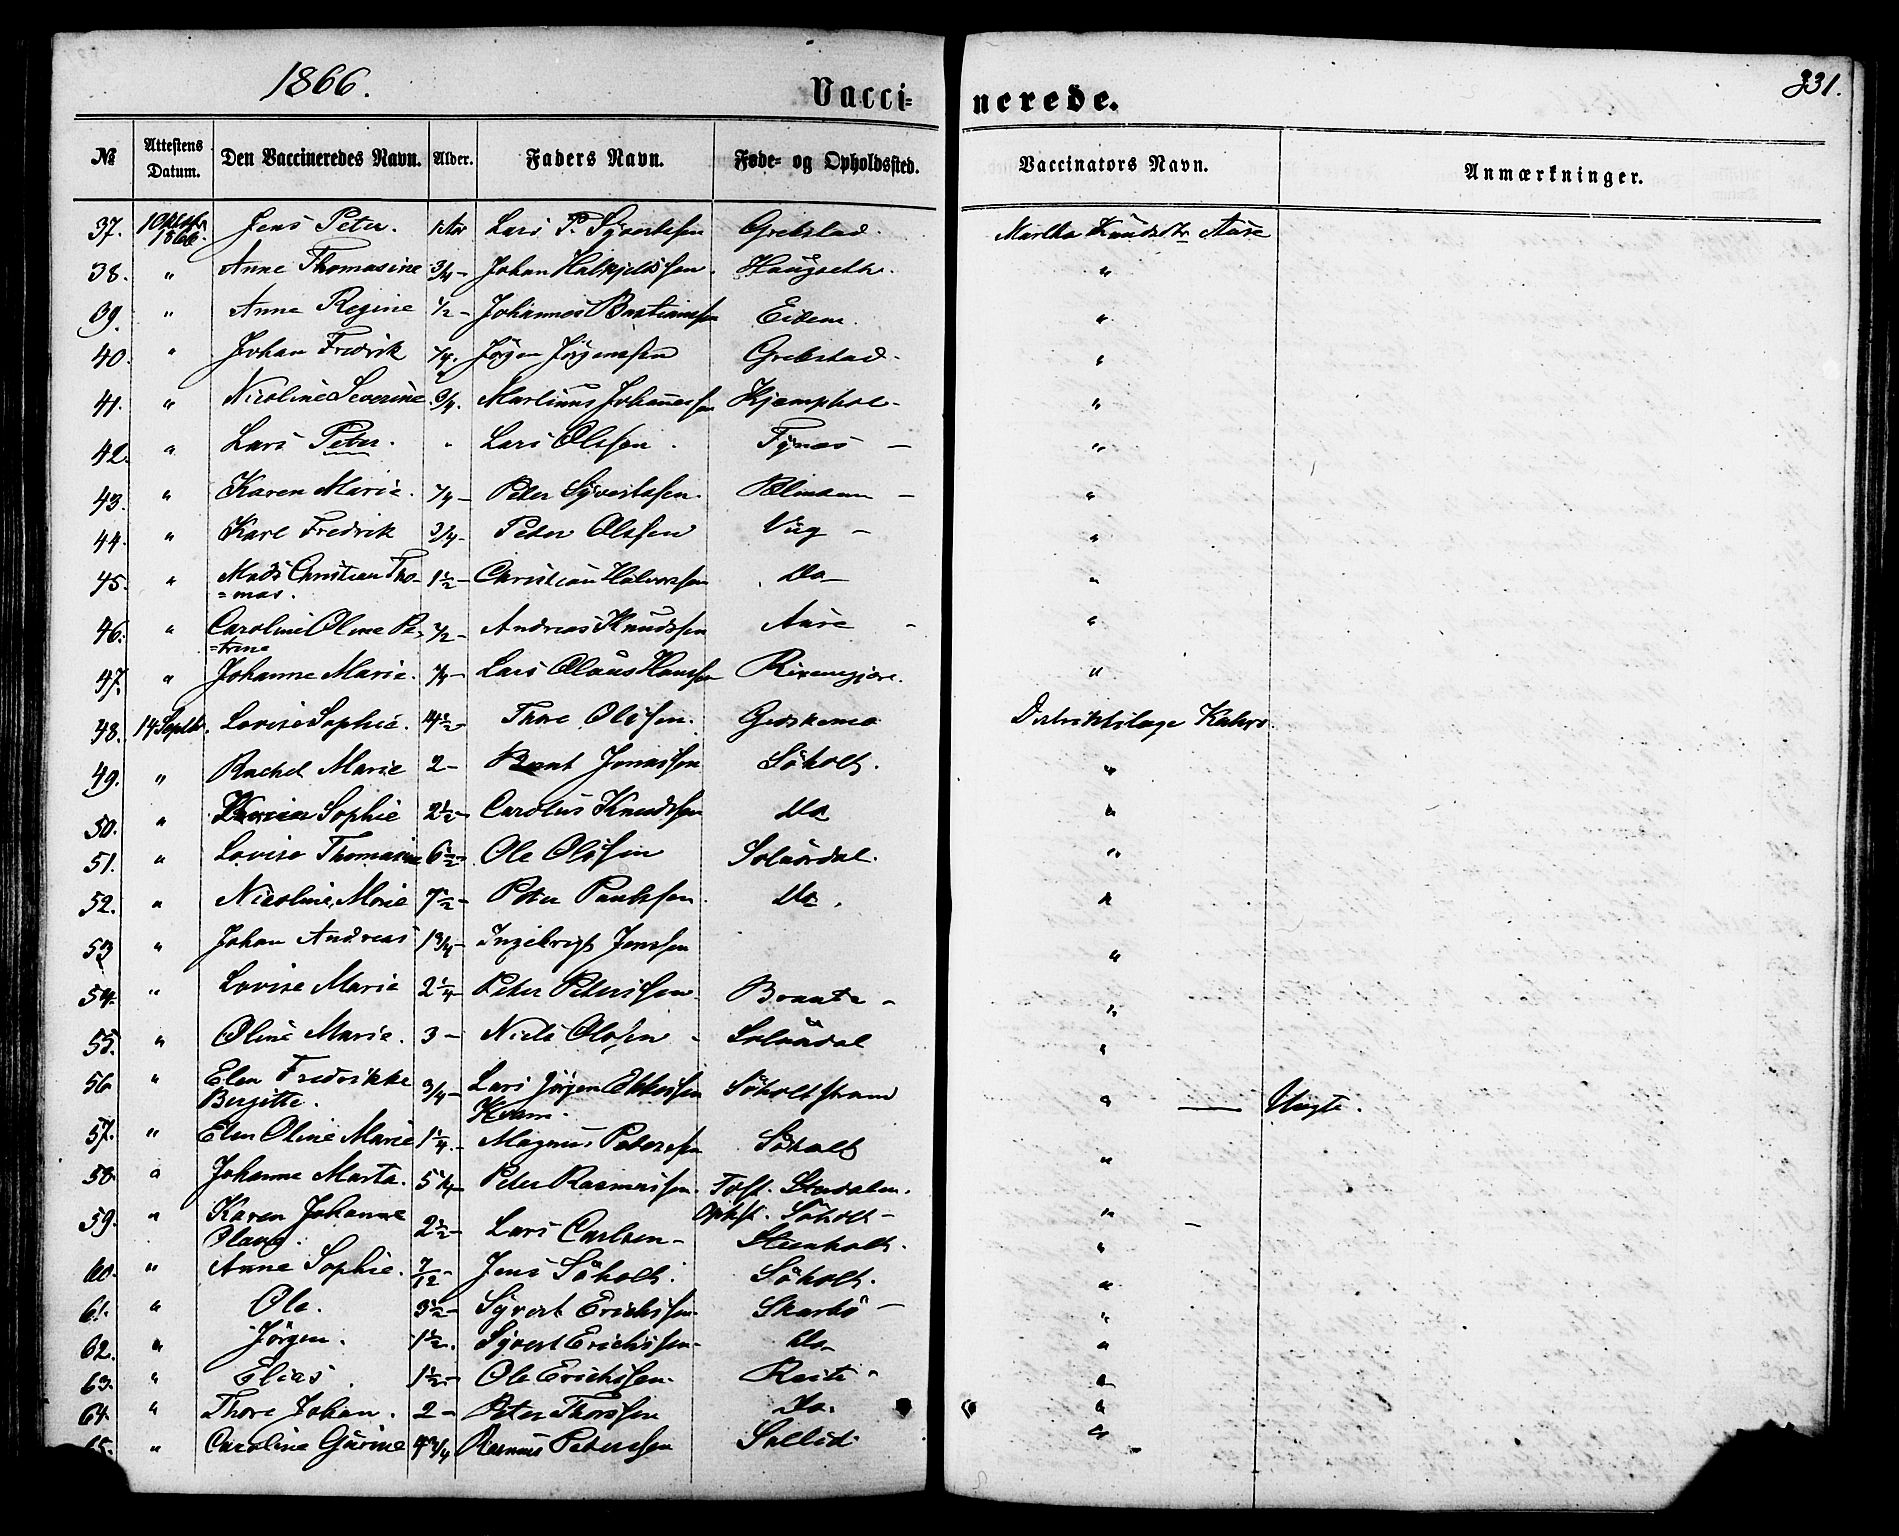 1866.
Vacci=
nerede.
331.
№ Attestens Datum. Den Vaccineredes Navn. Alder. Faders Navn. Føde- og Opholdssted. Vaccinators Navn. Anmærkninger.
37. 1866. Jens Peter. 1 Aar Lars P. Syvertsen Grebstad. Martha Knudsdtr Aure
38. " Anne Thomasine 3/4 - Johan Halkjeldssen. Haugseth. "
39. " Anne Regine 1/2 - Johannes Bastianssen Eidem. "
40. " Johan Fredrik Jørgen Jørgenssen Grebstad. "
41. " Nicoline Severine 3/4. Martinus Johanessen "
42. " Lars Peter. " Lars Olssen. Tynes - "
43. " Karen Marie. Peter Syvertssen. "
44. " Karl Fredrik 3/4 - Peter Olssen Vig - "
45. " Mads Christian Tho= 1 1/2 - Christian Halvorssen Do - "
=mas.
46. " Caroline Oline Pe- Andreas Knudssen Aure "
=trine
47. " Johanne Marie. Lars Olaus Hanssen "
48. 14 Septbr. Lovise Sophie. 4 1/2 - Thore Olssen. Distriktslæge
49. " Rachel Marie 2 - Bernt Jonassen Søholt. "
50. " Sophie 2 1/2 - Carolus Knudssen Do "
51. " Lovise Thomasine 6 1/2 - Ole Olssen Solnørdal. "
52. " Nicoline Marie 7 1/2 - Peter Do. "
53 " Johan Andreas 1 3/4 - Ingebrigt Jonssen "
54. " Lovise Marie 2 1/4 - Peter Peterssen. "
55. " Oline Marie. 3 - Niels Olssen - Solnørdal "
56 " Elen Fredrikke 3/4 - Lars Jørgen Søholtstrand " — Uægte.
Birgitte.
57. " Elen Oline Marie 1 1/4 - Magnus Peterssen Søholt "
58. " Johanne Marta. Peter Rasmussen. Stordalen. "
Opholst. Søholt -
59. " Karen Johanne 2 1/2 - Lars Carlsen - "
60. " Anne Sophie. 7/12 - Jens Søholt. Søholt. "
61. " Ole. 3 1/2 - Syvert Erichssen - Skarbø - "
62. " Jørgen. 1 1/2. Syvert Erichssen - Do - "
63. " Elias. 1 1/2 - Ole Erichssen. "
64. " Thore Johan. 2 - Peter Thorssen Do. "
" Caroline Gurine Rasmus Peterssen "